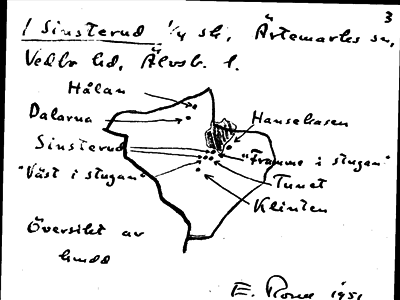 3
1 Sinsterud 1/4 sk, Ärtemarks sn,
Vedbo hd, Älvsb. l.
Hålan
Dalarna
Hansekasen
Sinsterud
"Framme i stugan"
"Väst i stugan"
Tunet
Klinten
Översikt av
1951